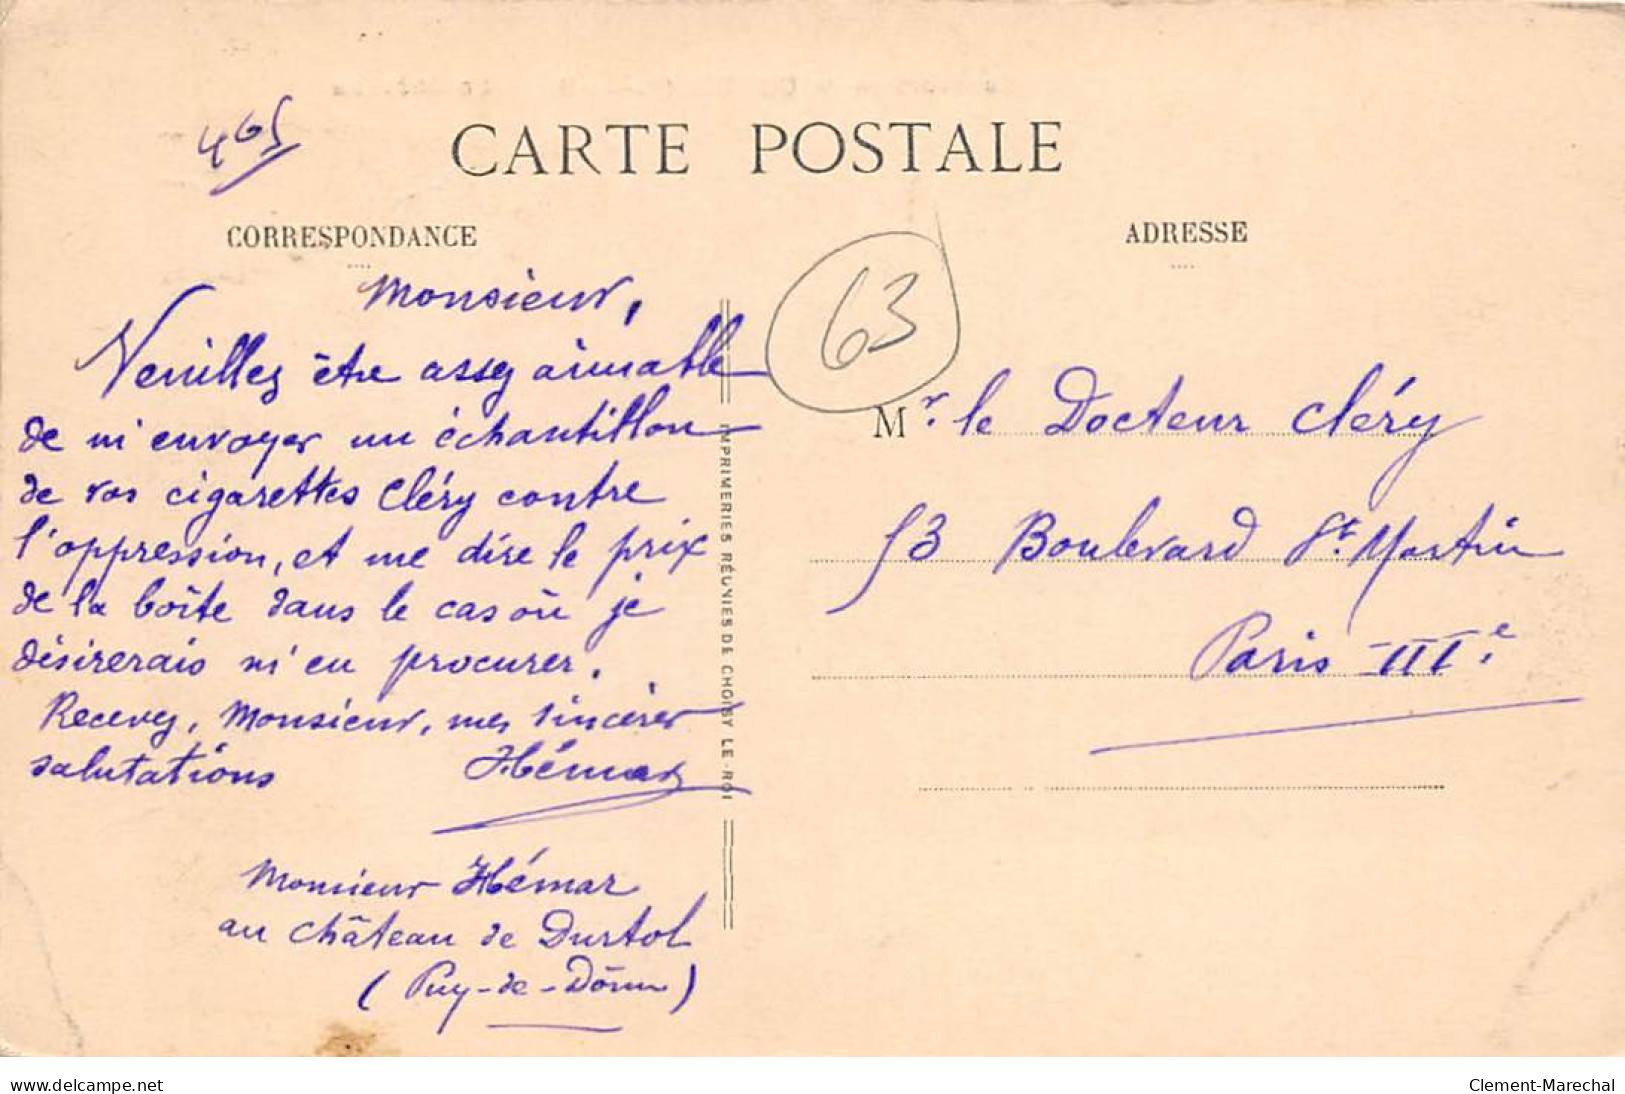 465
CARTE POSTALE
CORRESPONDANCE
ADRESSE
Monsieur,
Veuillez être assez aimable
de m'envoyer un échantillon
de vos cigarettes Cléry contre
l'oppression, et me dire le prix
de la boîte dans le cas où je
désirerais m'en procurer.
Recevez, Monsieur, mes sincères
salutations Hémar
Monsieur Hémar
au château de Durtol
(Puy-de-Dôme)
IMPRIMERIES RÉUNIES DE CHOISY LE-ROI
63
Mr. le Docteur Cléry
53 Boulevard St. Martin
Paris IIIe.
www.delcampe.net
Clement-Marechal